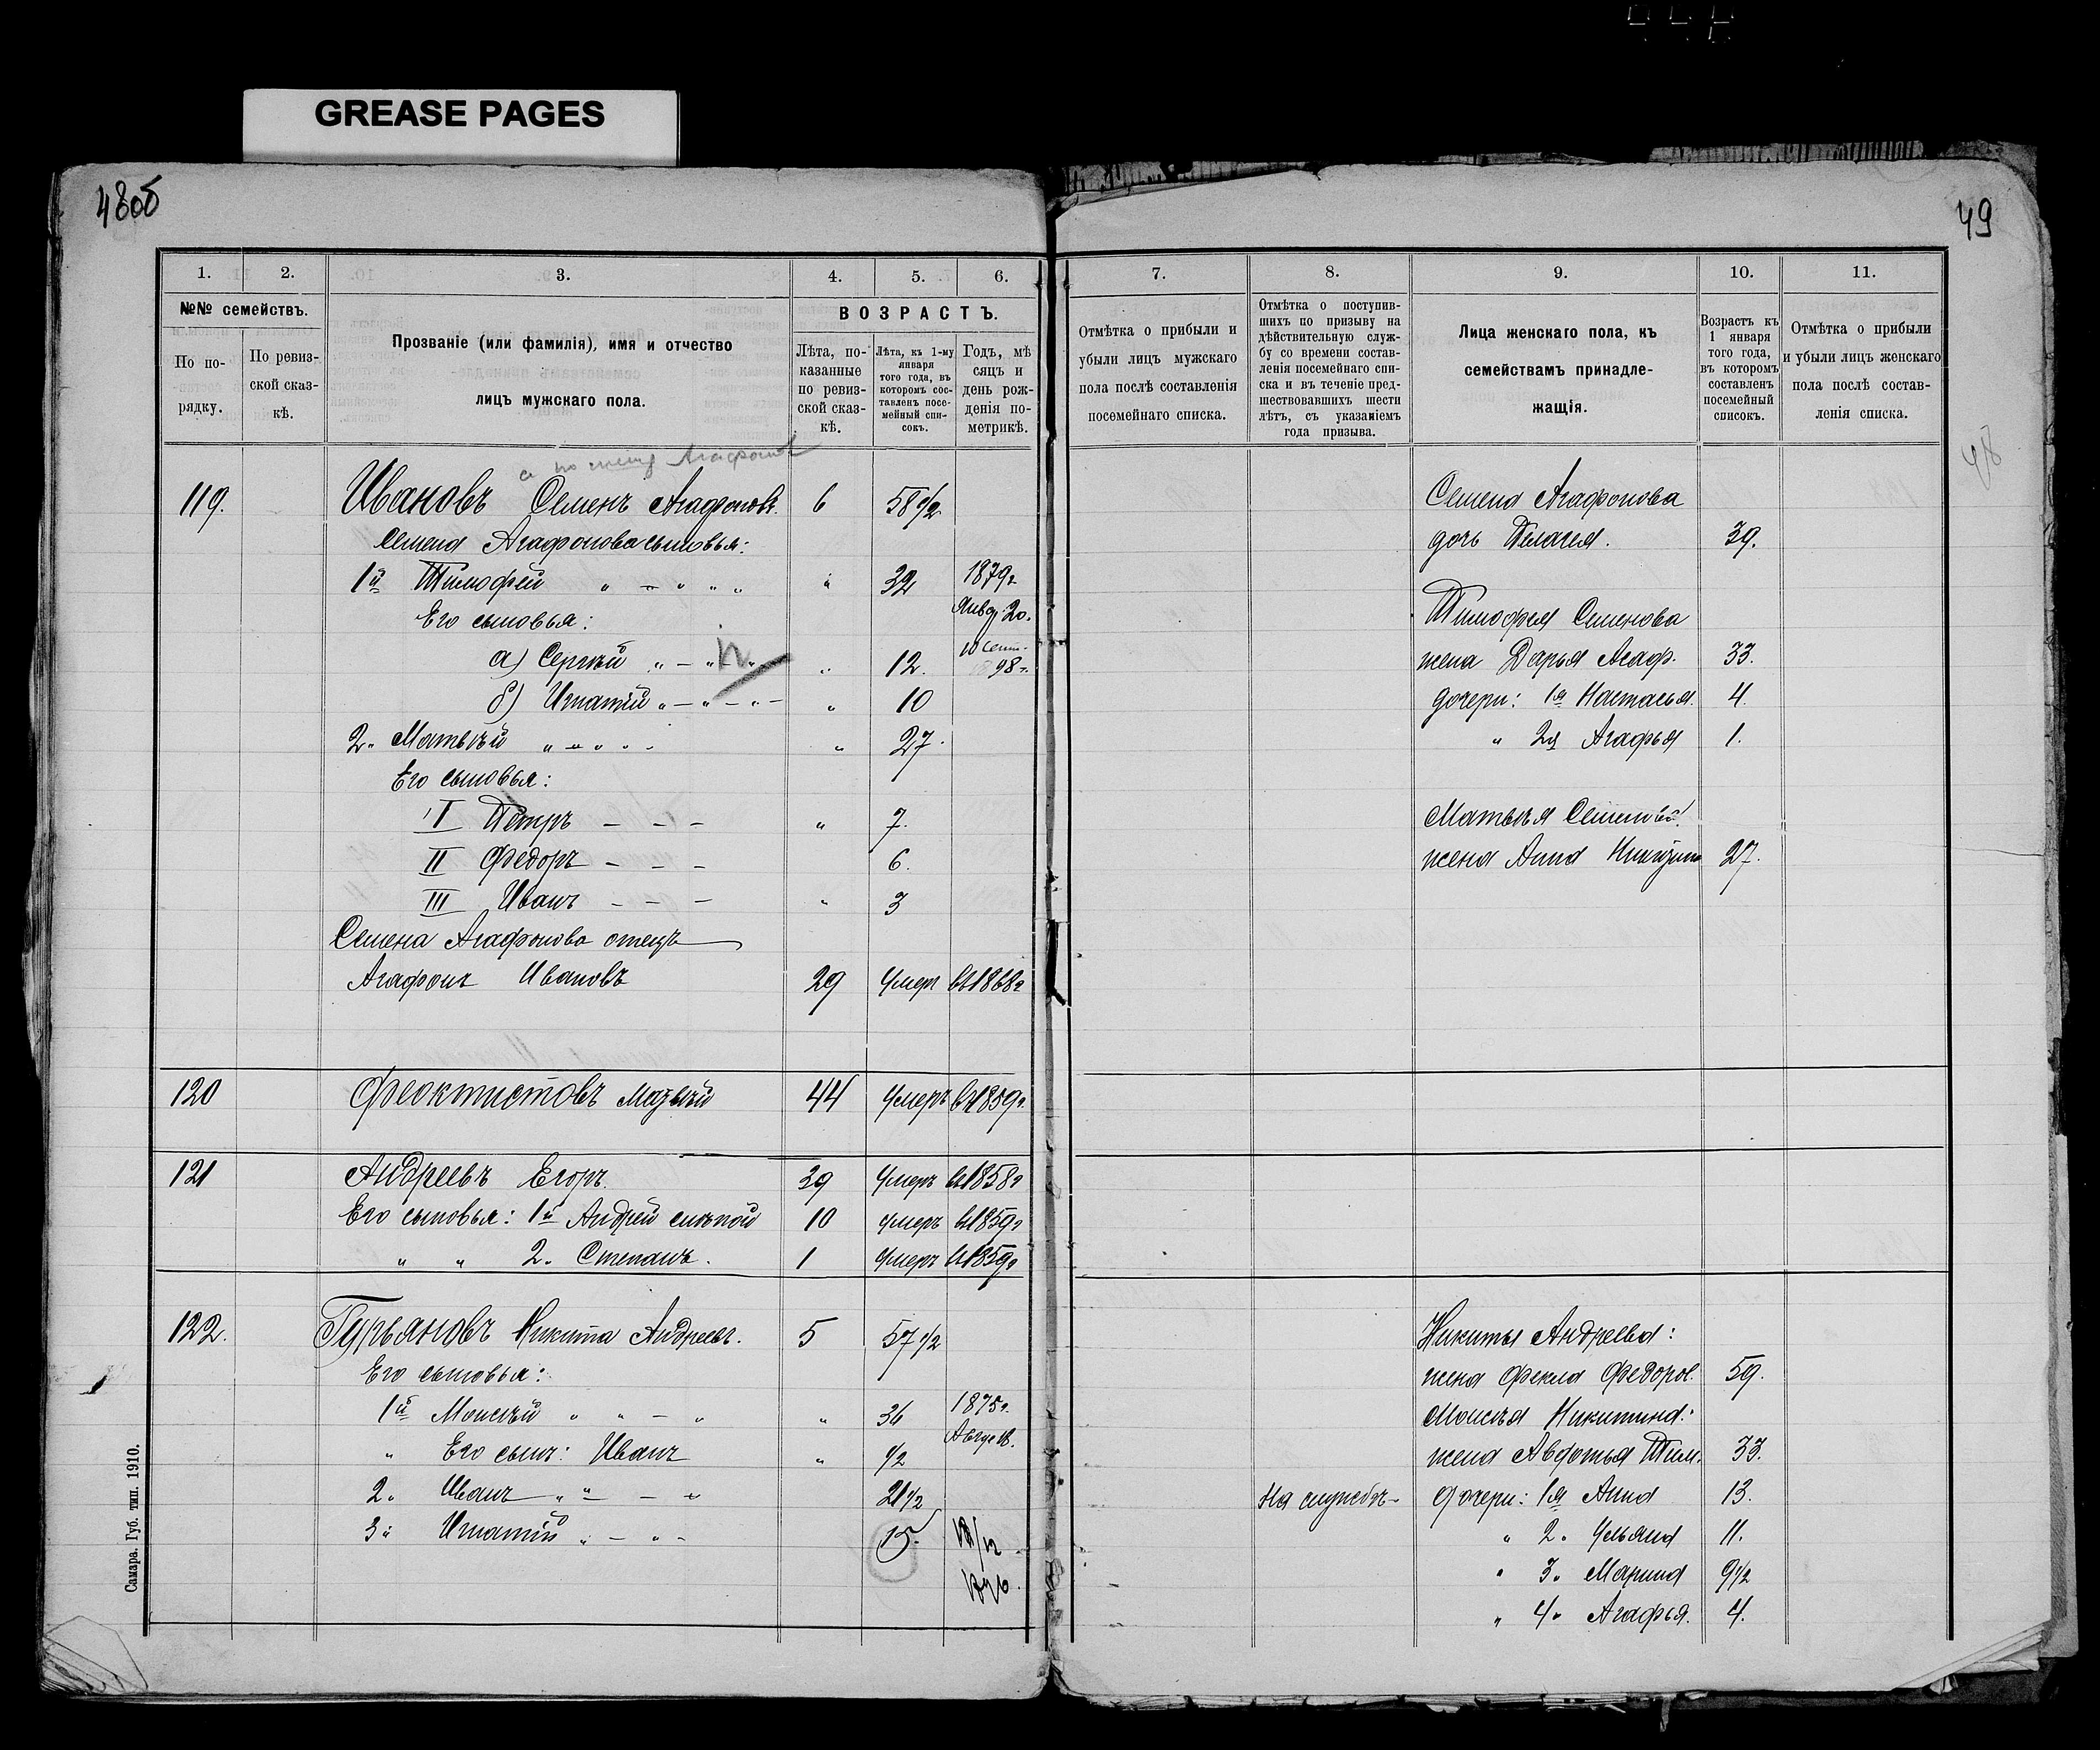 GREASE PAGES
48об
49
1. 2. 3. 4. 5. 6.
№№ семействъ.
По по-
рядку.
По ревиз-
ской сказ-
кѣ.
Прозваніе (или фамилія), имя и отчество
лицъ мужскаго пола.
ВОЗРАСТЪ.
Лѣта, по-
казанные
по ревиз-
ской сказ-
кѣ.
Лѣта, къ 1-му
января
того года, въ
которомъ сос-
тавленъ посе-
мейный спи-
сокъ.
Годъ, мѣ
сяцъ и
день рож-
денія по-
метрикѣ.
7. 8. 9. 10. 11.
Отмѣтка о прибыли и
убыли лицъ мужскаго
пола послѣ составленія
посемейнаго списка.
Отмѣтка о поступив-
шихъ по призыву на
дѣйствительную служ-
бу со времени состав-
ленія посемейнаго спи-
ска и въ теченіе пред-
шествовавшихъ шести
лѣтъ, съ указаніемъ
года призыва.
Лица женскаго пола, къ
семействамъ принадле-
жащія.
Возрастъ къ
1 января
того года,
въ которомъ
составленъ
посемейный
списокъ.
Отмѣтка о прибыли
и убыли лицъ женскаго
пола послѣ состав-
ленія списка.
119. Ивановъ Семенъ Агафоновъ. 6 58 1/2
Семена Агафонова сыновья:
1й Тимофей " — " " " " 32 1879г
Январ. 20.
Его сыновья:
а) Сергѣй " — " " 12. 10 Сент.
98 г.
б) Игнатій " — " — " — " 10
2. Матвѣй " — " " " " 27.
Его сыновья:
I Петръ — — — " 7.
II Федоръ — — — 6.
III Иванъ — — — " 3
Семена Агафонова отецъ
Агафонъ Ивановъ 29 Умеръ въ 1868г
120 Феоктистовъ 44 Умеръ въ 1859г.
121 Андреевъ Егоръ. 39 Умеръ въ 1858г
Его сыновья: 1й Андрей слѣпой 10 умеръ въ 1859г
" " 2. Степанъ. 1 Умеръ въ 1859г
122. Гурьяновъ Никита Андреевъ. 5 57 1/2
Его сыновья:
1й Моисѣй " " — " " 36 1875г.
Август 18.
" Его сынъ: Иванъ " 1/2
2. Иванъ " " — — " 21 1/2
3й Игнатій " — " - 15.
Семена Агафонова
дочь Пелагея. 39.
Тимофея Семенова
жена Дарья Агаф. 33.
дочери: 1я Настасья. 4.
" 2я Агафья 1.
Матвѣя Семенова
жена Анна 27.
Никиты Андреева:
жена Фекла Федоров. 59.
Моисѣя Никитина:
жена Авдотья Тим. 33.
На службѣ— дочери: 1я Анна 13.
" 2. Ульяна 11.
" 3. Марина 9 1/2
" 4. Агафья. 4.
48
Самара. Губ. тип. 1910.